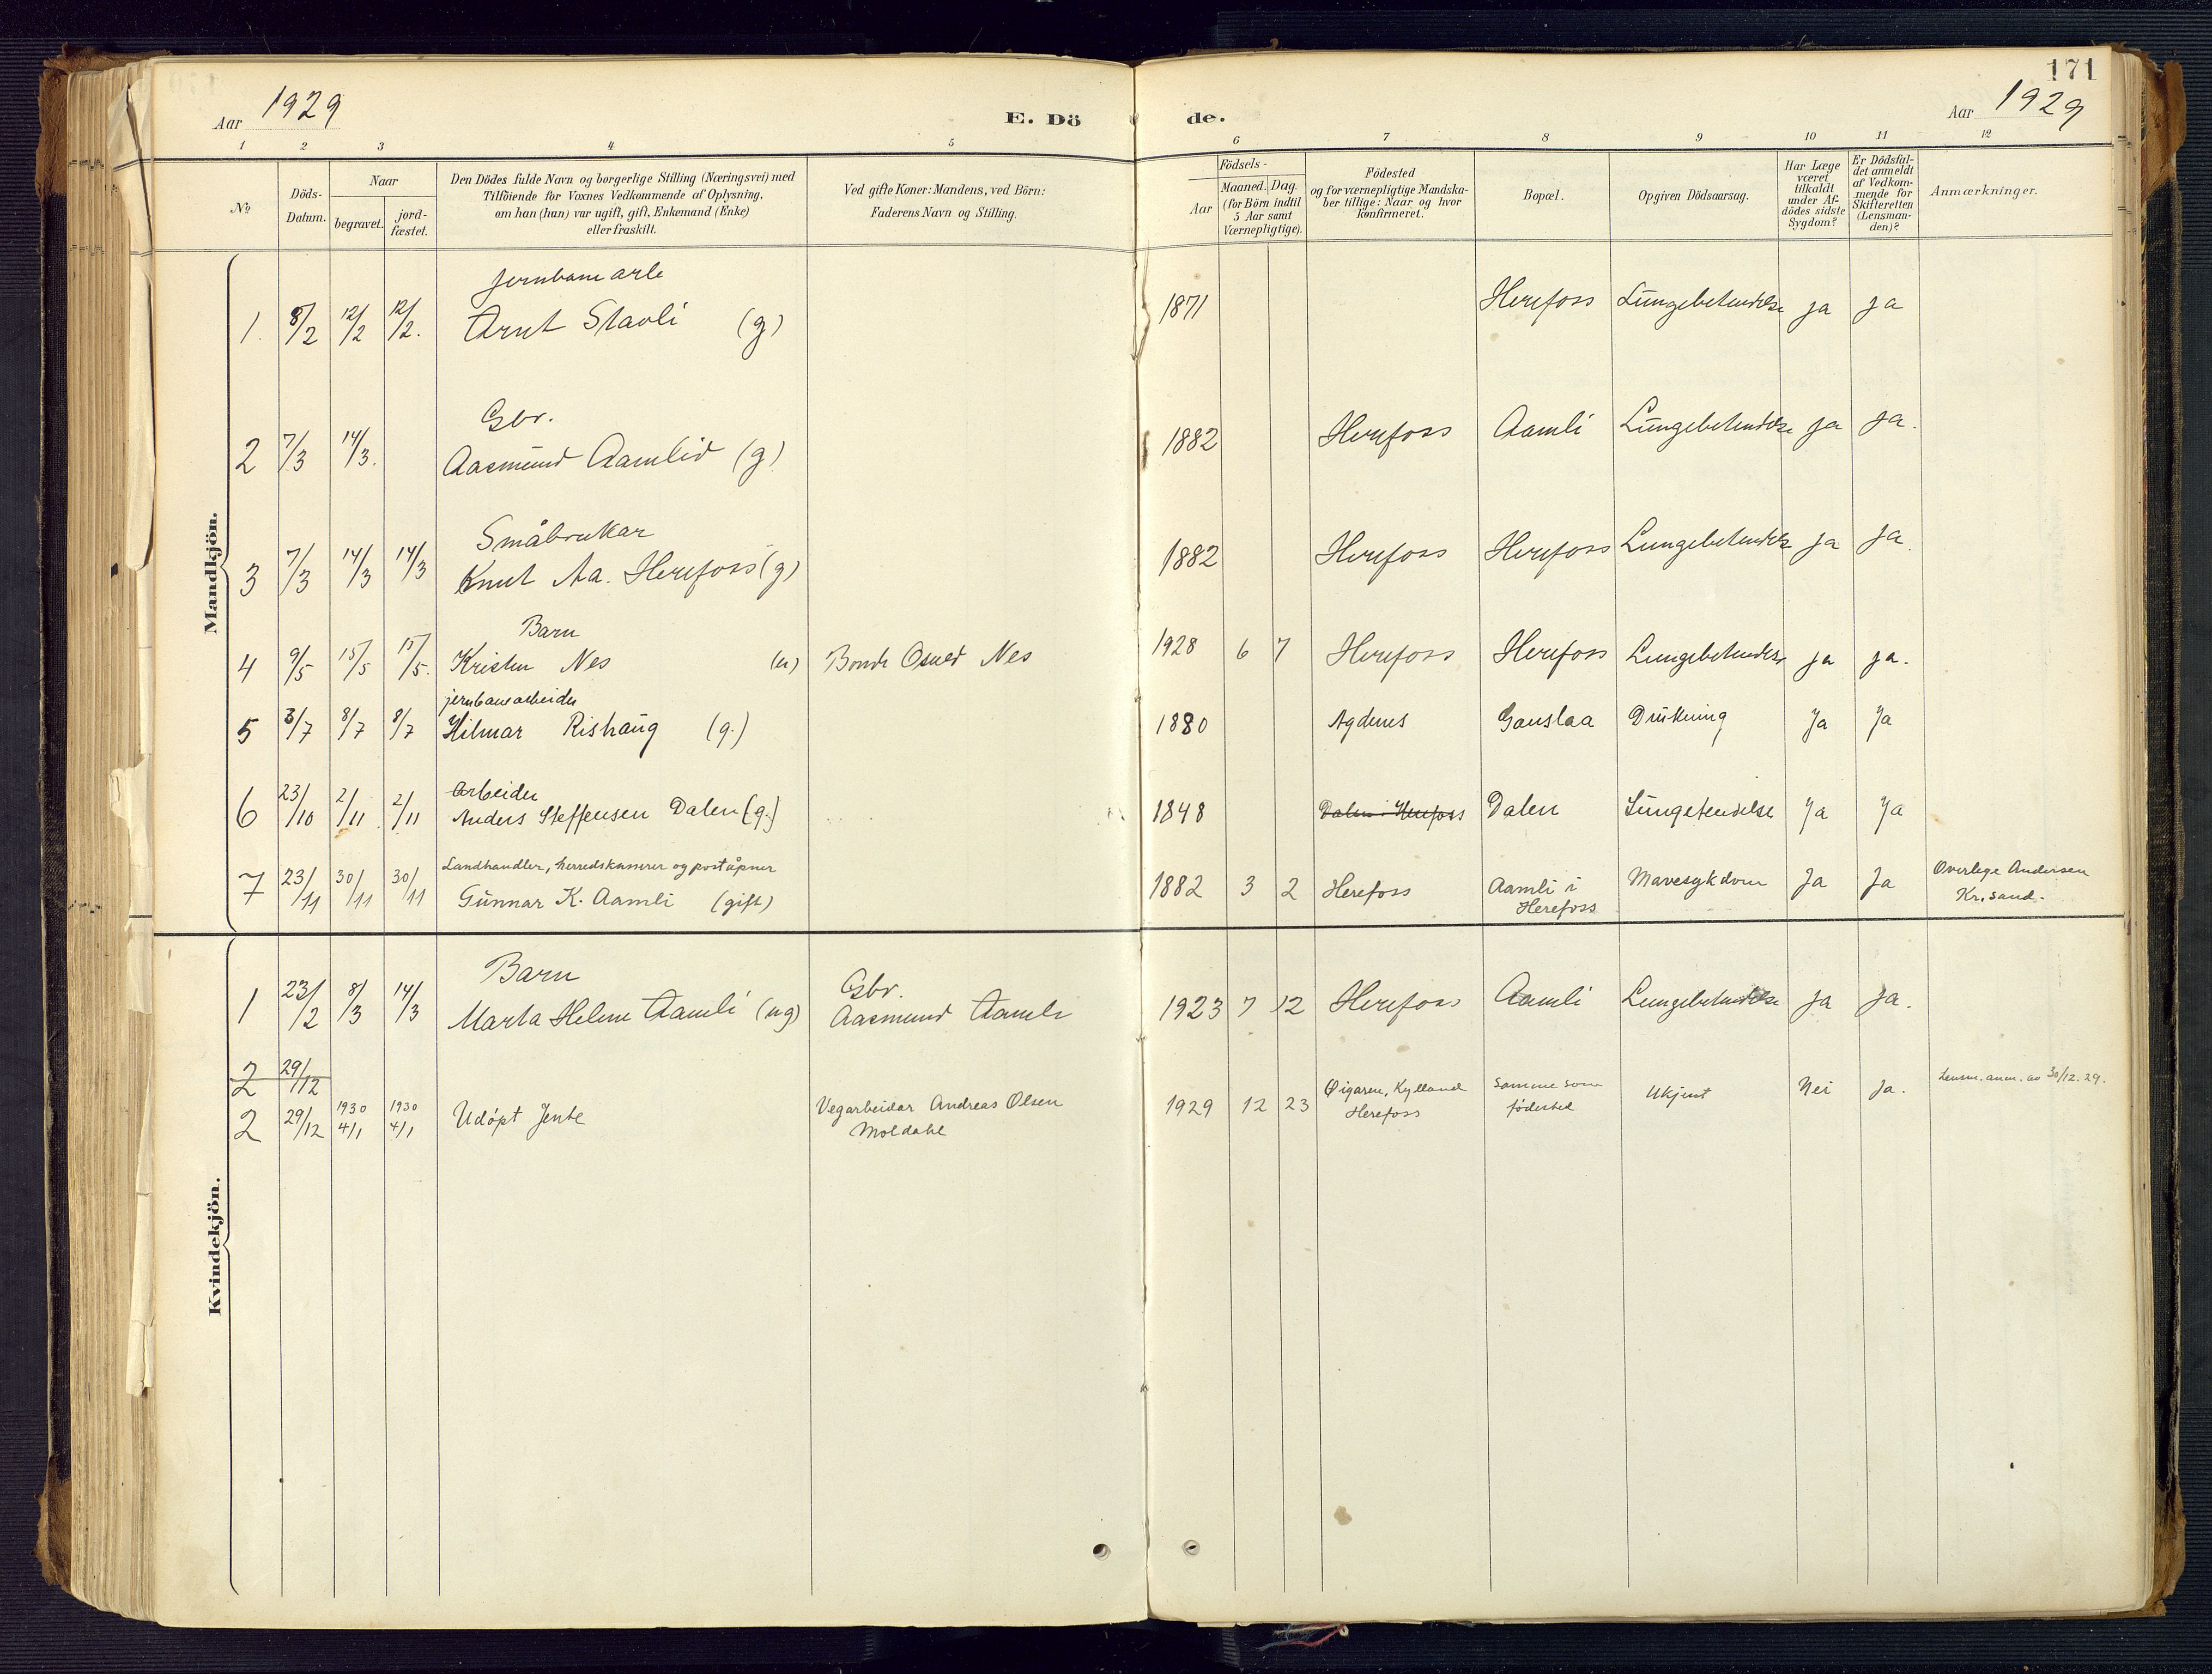 171
Aar 1929
E. Dö
de.
Aar 1929
1 2 3 4 5 6 7 8 9 10 11 12
No
Döds-
Datum.
Naar
begravet.
jord-
fæstet.
Den Dödes fulde Navn og borgerlige Stilling (Næringsvei) med
Tilföiende for Voxnes Vedkommende af Oplysning,
om han (hun) var ugift, gift, Enkemand (Enke)
eller fraskilt.
Ved gifte Koner: Mandens, ved Börn:
Faderens Navn og Stilling.
Födsels-
Aar
Maaned. Dag.
(for Börn indtil
5 Aar samt
Værnepligtige).
Födested
og for værnepligtige Mandska-
ber tillige: Naar og hvor
konfirmeret.
Bopæl.
Opgiven Dödsaarsag.
Har Læge
været
tilkaldt
under Af-
dödes sidste
Sygdom?
Er Dödsfal-
det anmeldt
af Vedkom-
mende for
Skifteretten
(Lensman-
den)?
Anmærkninger.
Mandkjön.
Jernbanearb
1. 8/2 12/2 12/2. Arnt Stavli (g) 1871 Herefoss Lungebetendelse ja ja
Gbr.
2 7/3 14/3. Aasmund Aamlid (g) 1882 Herefoss Aamli Lungebetendelse ja ja.
Småbrukar
3 7/3 14/3 14/3 Knut Aa. Herefoss (g) 1882 Herefoss Herefoss Lungebetendelse ja ja.
Barn
4 9/5 15/5 15/5. Kristen Nes (u) Bonde Osuld Nes 1928 6 7 Herefoss Herefoss Lungebetendelse ja ja.
jernbanearbeider
5 3/7 8/7 8/7 Hilmar Rishaug (g.) 1880 Agdenes Gauslaa Drukning Ja Ja
Arbeider
6 23/10 2/11 2/11 Anders Steffensen Dalen (g.) 1848 Dalen i Herefoss Dalen Lungetendelse Ja Ja
Landhandler, herredskasserer og poståpner
7 23/11 30/11 30/11 Gunnar K. Aamli (gift) 1882 3 2 Herefoss Aamli i Herefoss Mavesykdom Ja Ja Overlege Andersen
Kr.sand.
Kvindekjön.
Barn Gbr.
1 23/2 8/3 14/3 Marta Helene Aamli (ug) Aasmund Aamli 1923 7 12 Herefoss Aamli Lungebetendelse ja ja.
2 29/12
2 29/12 1930 4/1 1930 4/1 Udöpt Jente Vegarbeidar Andreas Olsen
Moldahl 1929 12 23 Øigaren, Kylland
Herefoss samme som
fødested Ukjent Nei ja. Lensm. anm. av 30/12. 29.